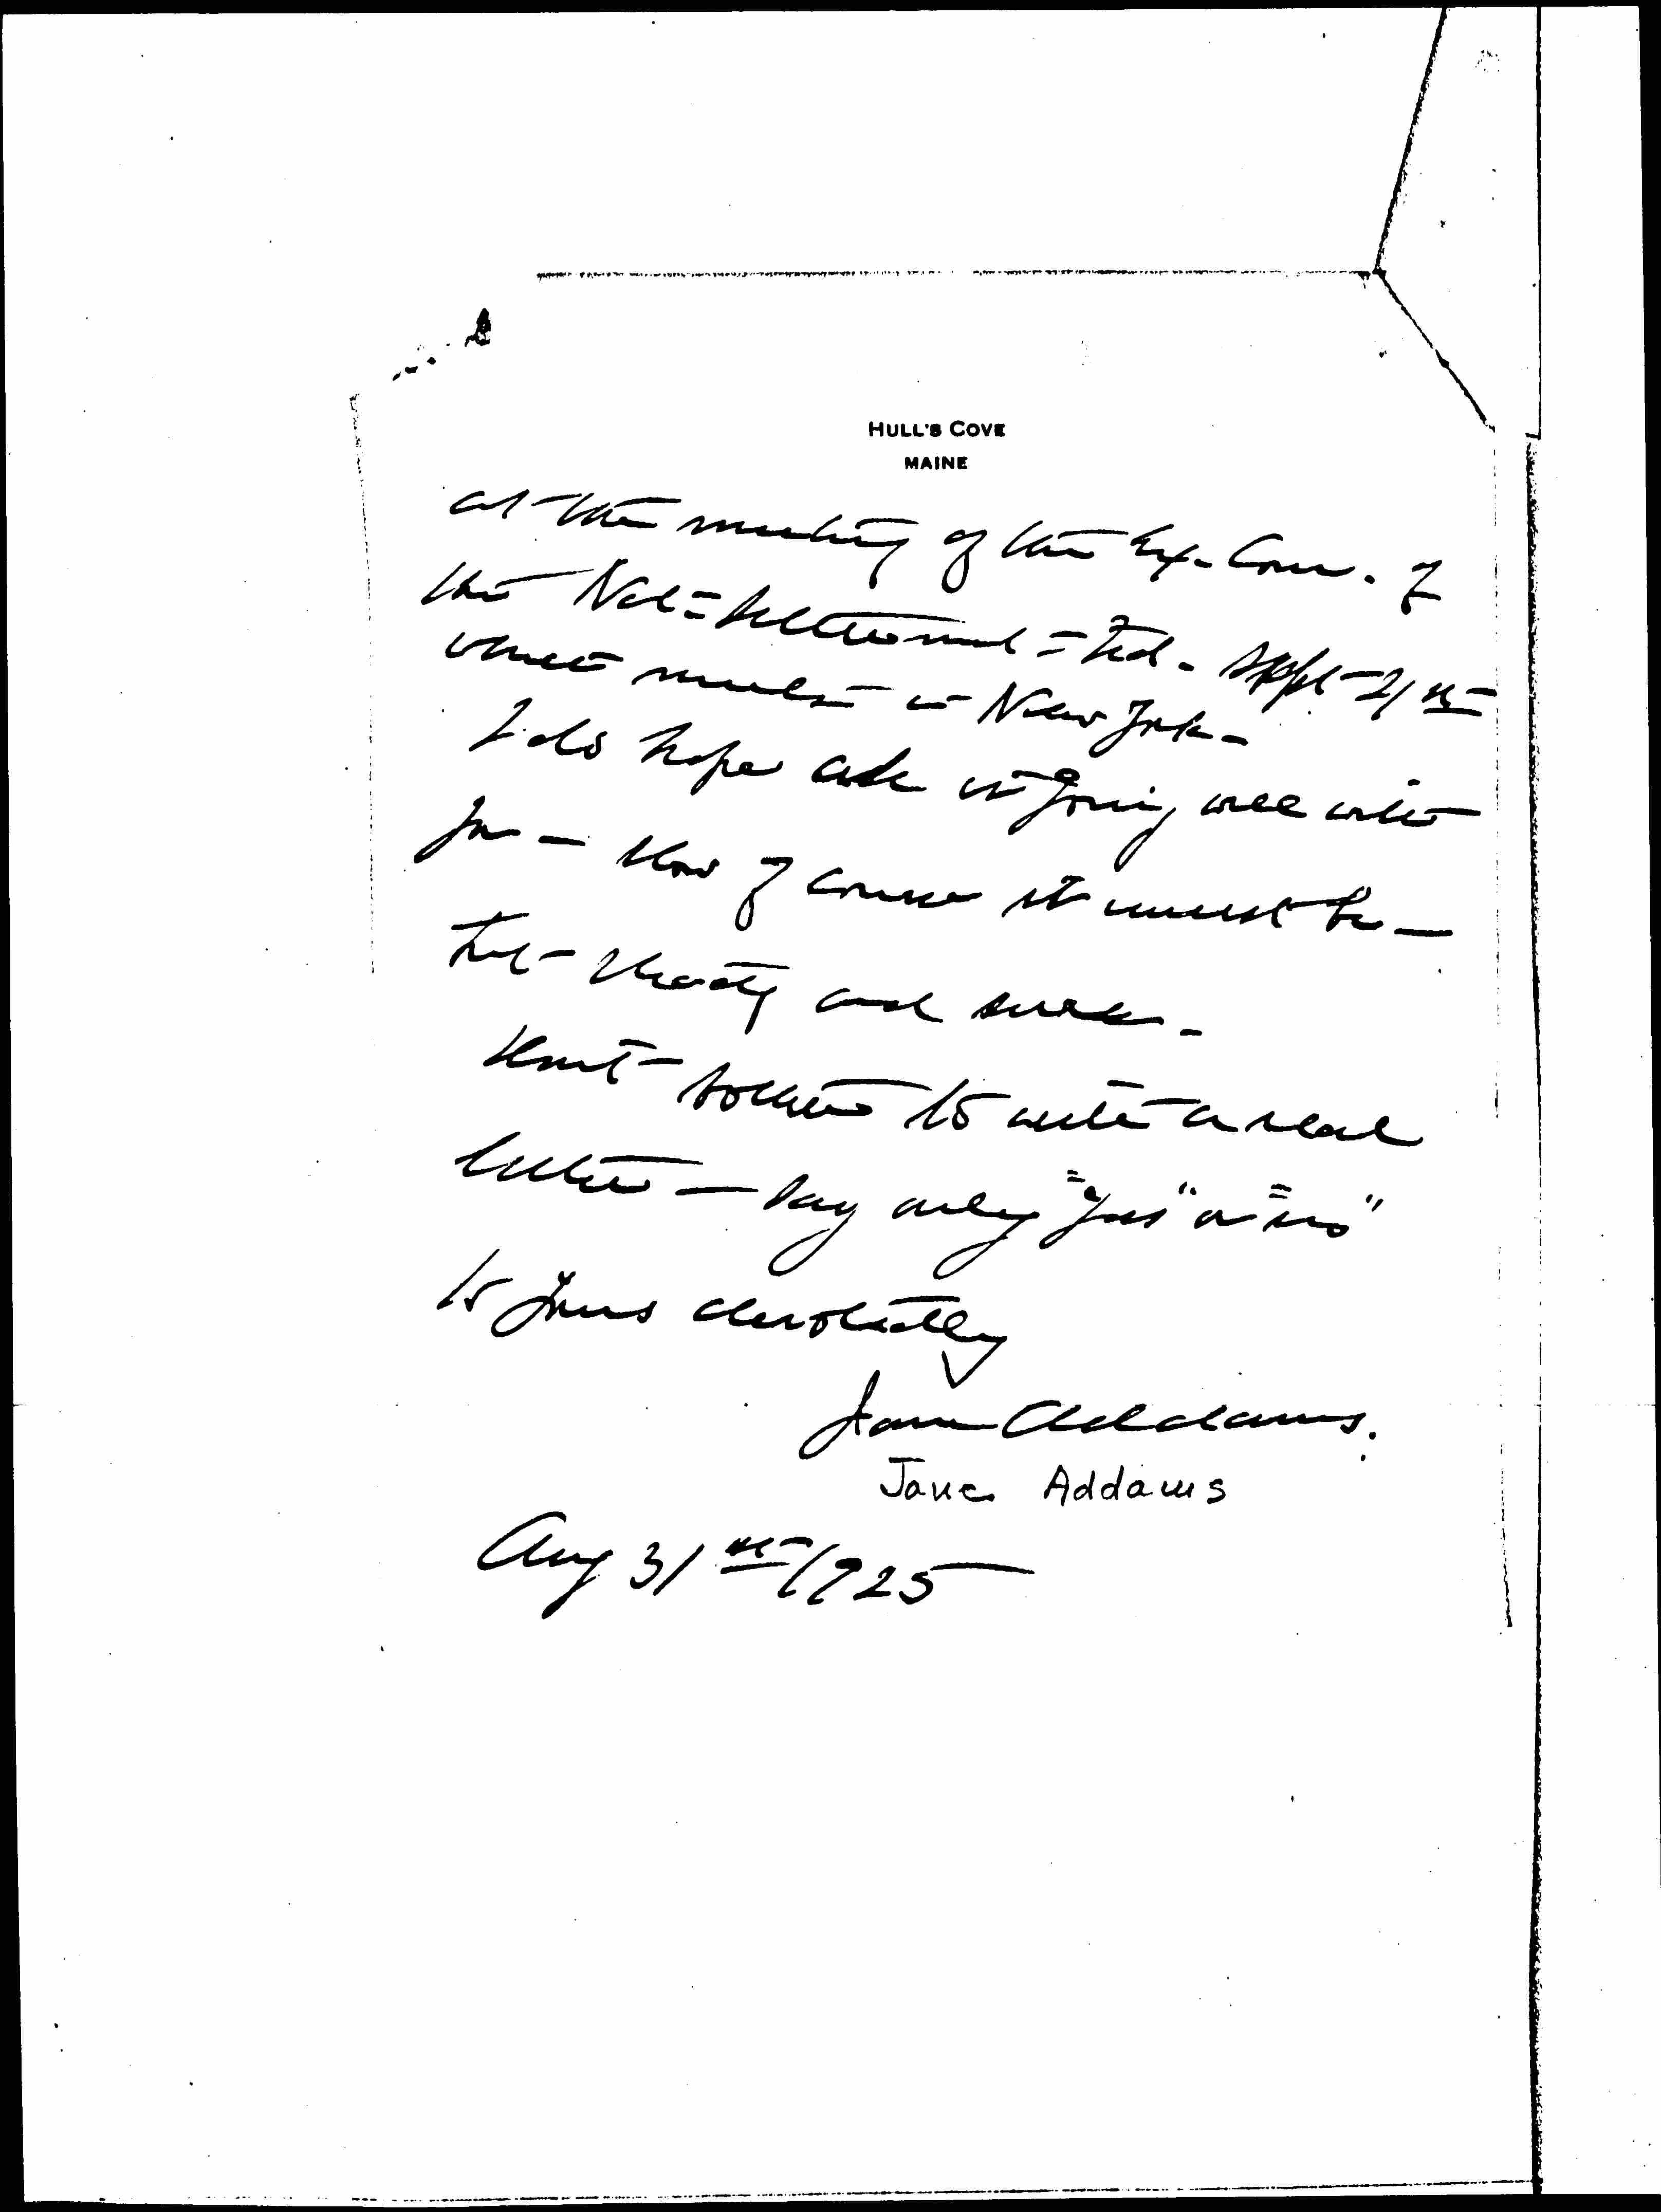 HULL'S COVE
MAINE
at the meeting of the Ex. Com. of
the Nat = Settlement = Fed. Sept 21st
which meets in New York -
I do hope all is going well with
you - slow of course it must be -
but steady and sure.
Don't bother to write a real
letter - say only "yes" or "no"
to yours devotedly
Jane Addams.
Jane Addams
Aug 31st 1925